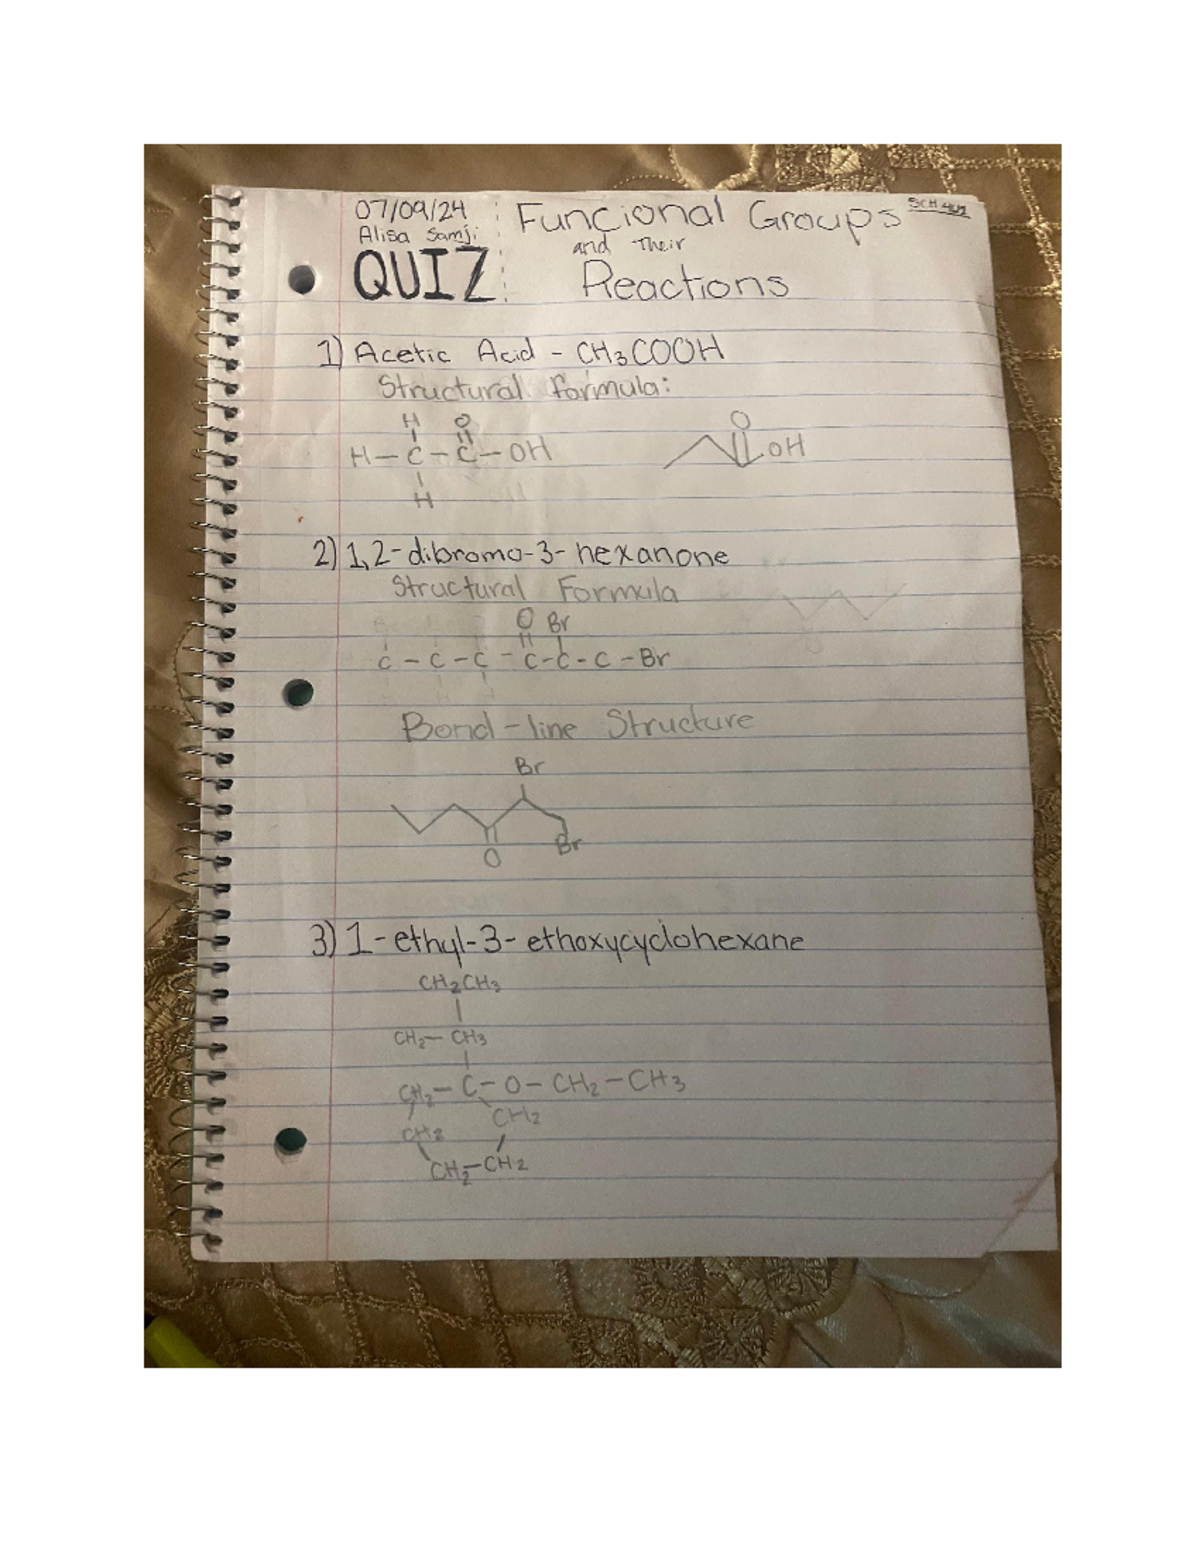 07/09/24
Alisa Samji
QUIZ
Funcional Groups
and Their
Reactions
SCH4U
1) Acetic Acid - CH3COOH
Structural formula:
H O
H-C-C-OH
H
O
OH
2) 1,2-dibromo-3-hexanone
Structural Formula
O Br
C-C-C-C-C-C-Br
Bond-line Structure
Br
O Br
3) 1-ethyl-3-ethoxycyclohexane
CH2CH3
CH2-CH3
CH2-C-O-CH2-CH3
CH2
CH2
CH2-CH2